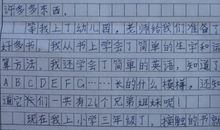 许多多东西。
等我上了幼儿园，老师给我们准备了
好多书，我从书上学会了简单的生字和
算方法，我还学会了简单的英语，知道了
A B C D E F G……长的什么模样，还知
道它我们一共有26个兄弟姐妹呢！
现在我上小学三年级了，接触的书